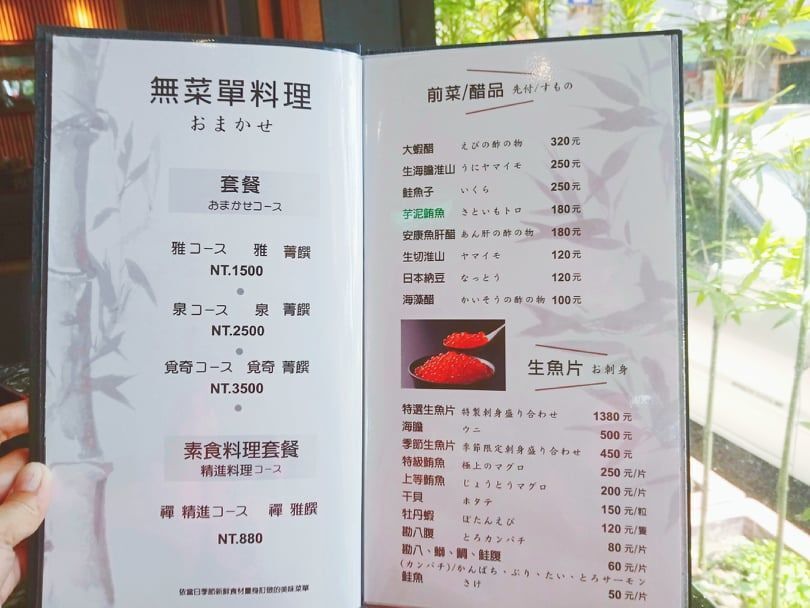 無菜單料理
おまかせ
套餐
おまかせコース
雅コース 雅 菁饌
NT.1500
泉コース 泉 菁饌
NT.2500
覓奇コース 覓奇 菁饌
NT.3500
素食料理套餐
精進料理コース
禪 精進コース 禪 雅饌
NT.880
依當日季節新鮮食材量身訂做的美味菜單
前菜/醋品 先付/すもの
大蝦醋 えびの酢の物 320元
生海膽淮山 うにヤマイモ 250元
鮭魚子 いくら 250元
芋泥鮪魚 さといもトロ 180元
安康魚肝醋 あん肝の酢の物 180元
生切淮山 ヤマイモ 120元
日本納豆 なっとう 120元
海藻醋 かいそうの酢の物 100元
生魚片 お刺身
特選生魚片 特製刺身盛り合わせ 1380元
海膽 ウニ 500元
季節生魚片 季節限定刺身盛り合わせ 450元
特級鮪魚 極上のマグロ 250元/片
上等鮪魚 じょうとうマグロ 200元/片
干貝 ホタテ 150元/粒
牡丹蝦 ぼたんえび 120元/隻
勘八腹 とろカンパチ 80元/片
勘八、鰤、鯛、鮭腹 60元/片
(カンパチ)/かんぱち、ぶり、たい、とろサーモン
鮭魚 さけ 50元/片